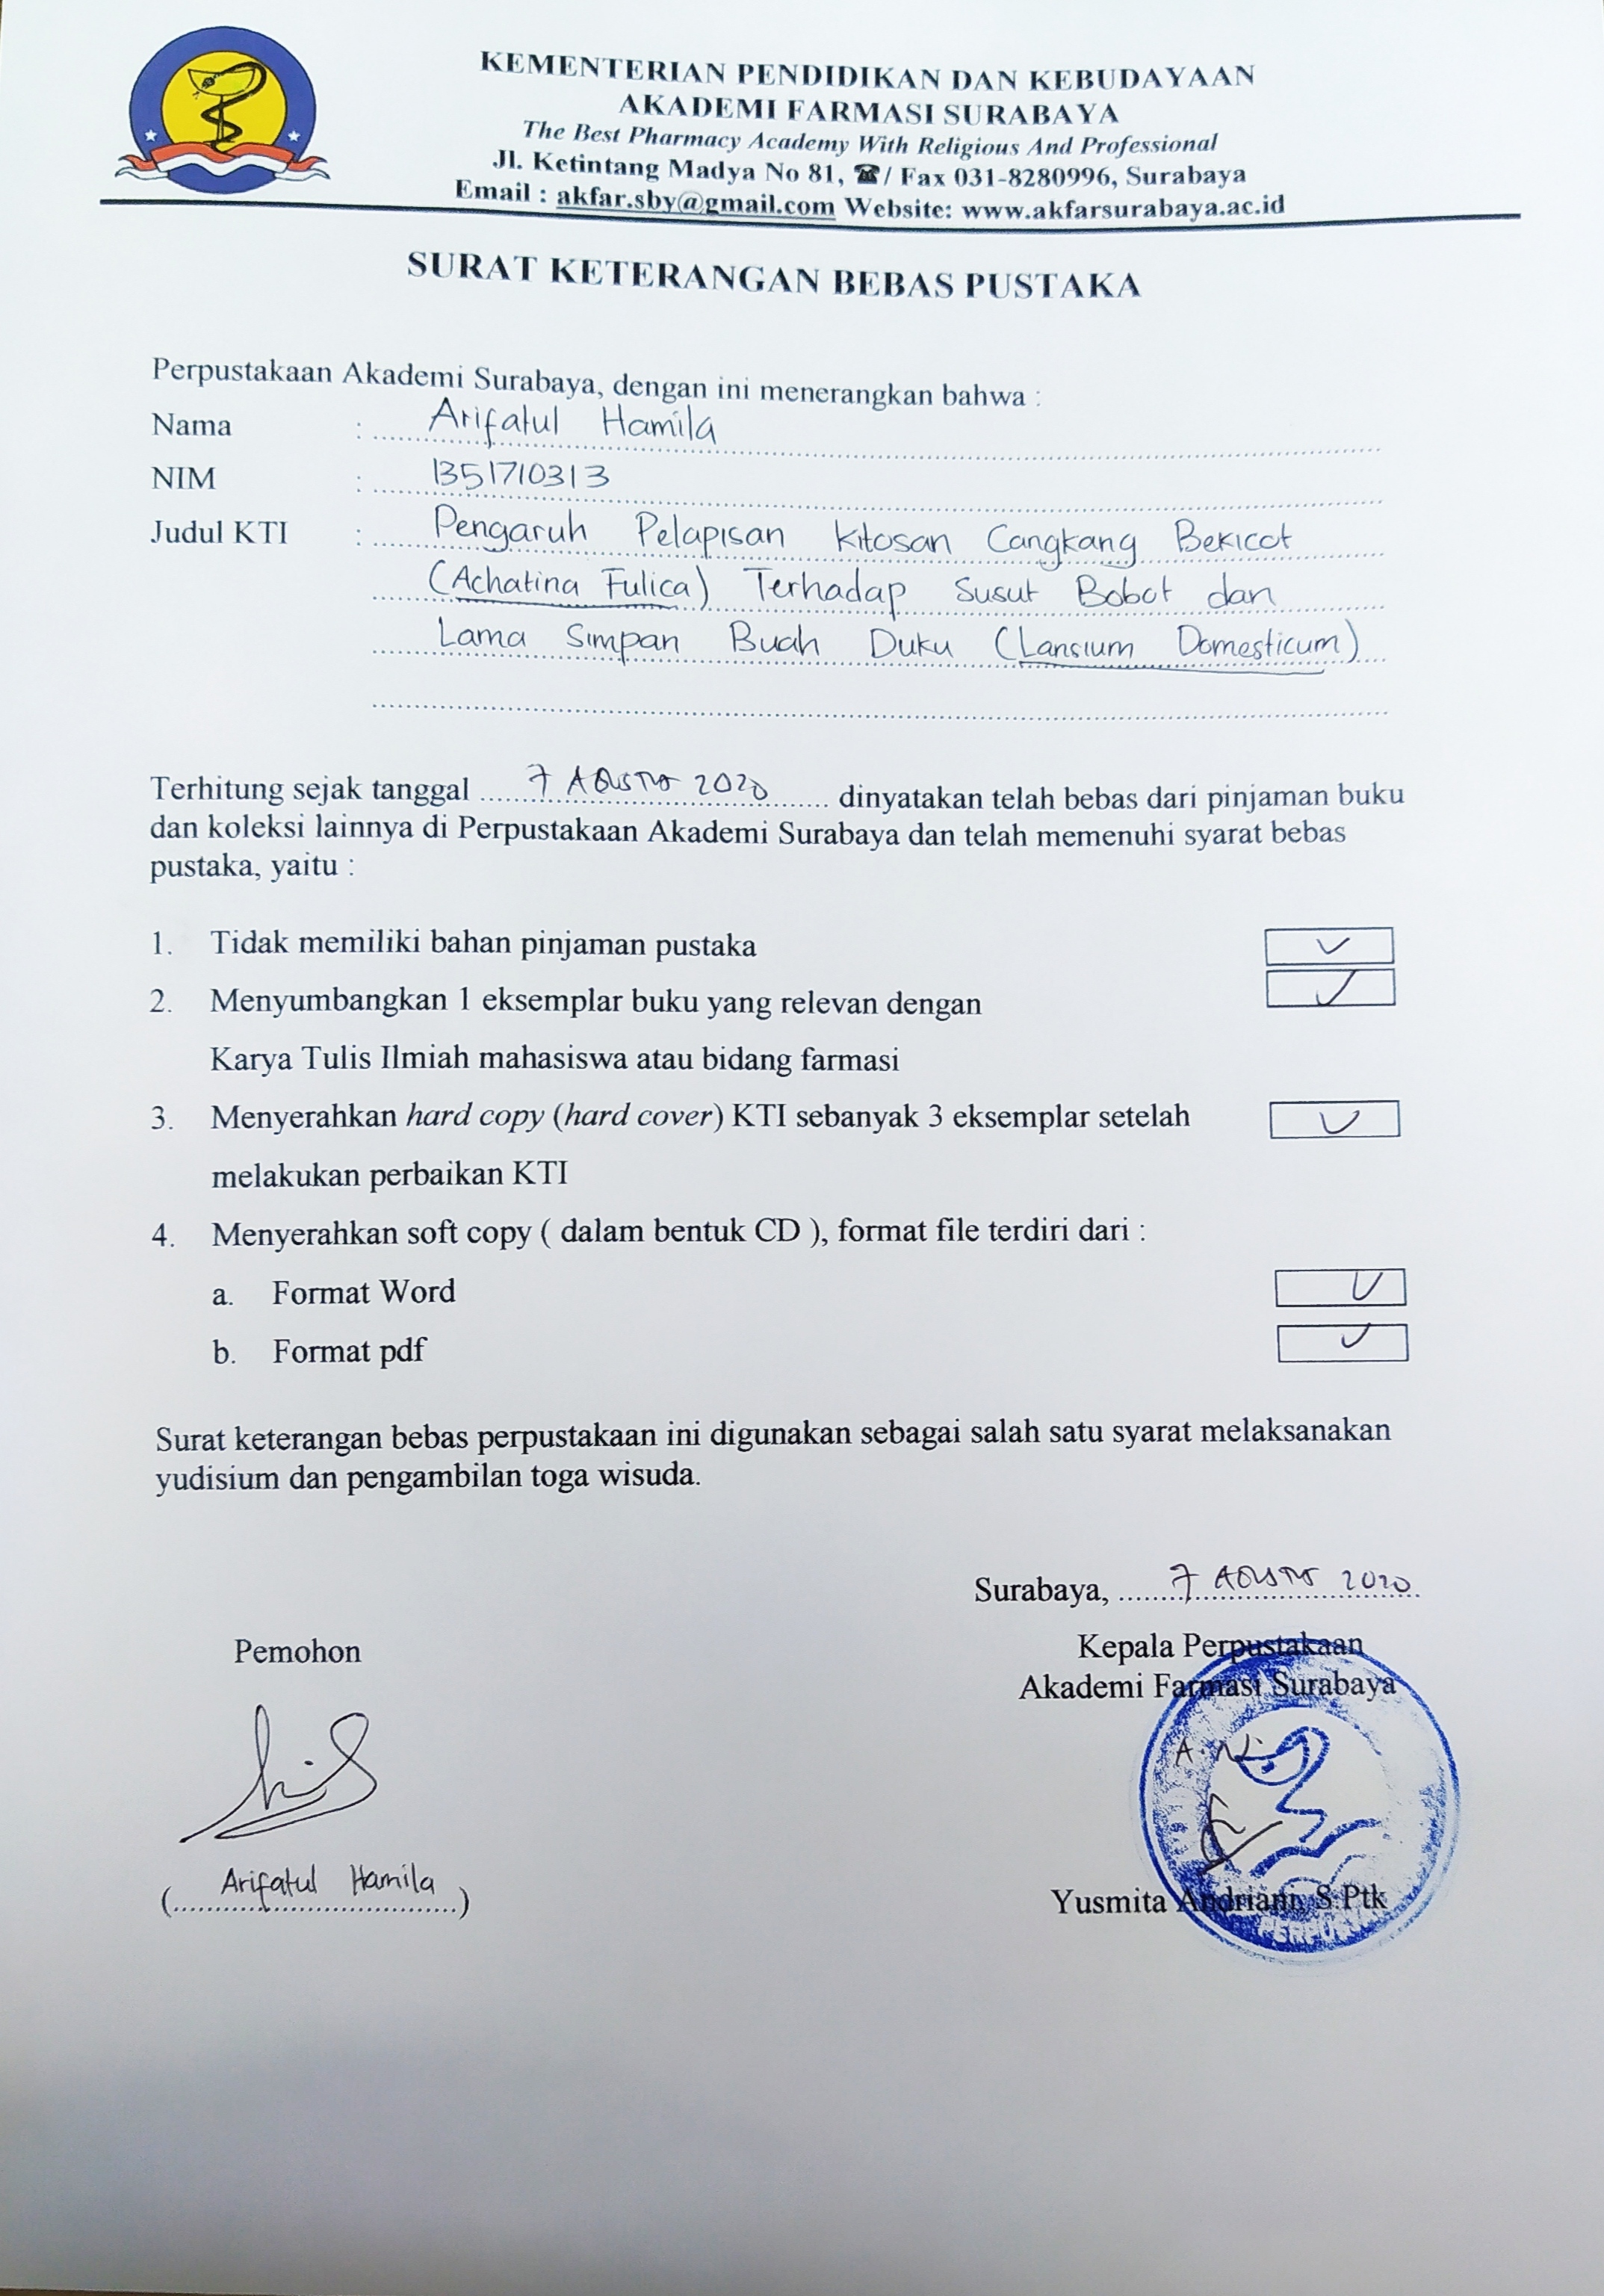 KEMENTERIAN PENDIDIKAN DAN KEBUDAYAAN
AKADEMI FARMASI SURABAYA
The Best Pharmacy Academy With Religious And Professional
Jl. Ketintang Madya No 81, ☎/ Fax 031-8280996, Surabaya
Email : akfar.sby@gmail.com Website: www.akfarsurabaya.ac.id
SURAT KETERANGAN BEBAS PUSTAKA
Perpustakaan Akademi Surabaya, dengan ini menerangkan bahwa :
Nama : Arifatul Hamila
NIM : 1351710313
Judul KTI : Pengaruh Pelapisan Kitosan Cangkang Bekicot
(Achatina Fulica) Terhadap Susut Bobot dan
Lama Simpan Buah Duku (Lansium Domesticum)
Terhitung sejak tanggal 7 Agustus 2020 dinyatakan telah bebas dari pinjaman buku
dan koleksi lainnya di Perpustakaan Akademi Surabaya dan telah memenuhi syarat bebas
pustaka, yaitu :
1. Tidak memiliki bahan pinjaman pustaka ✓
2. Menyumbangkan 1 eksemplar buku yang relevan dengan ✓
Karya Tulis Ilmiah mahasiswa atau bidang farmasi
3. Menyerahkan hard copy (hard cover) KTI sebanyak 3 eksemplar setelah ✓
melakukan perbaikan KTI
4. Menyerahkan soft copy ( dalam bentuk CD ), format file terdiri dari :
a. Format Word ✓
b. Format pdf ✓
Surat keterangan bebas perpustakaan ini digunakan sebagai salah satu syarat melaksanakan
yudisium dan pengambilan toga wisuda.
Surabaya, 7 Agustus 2020
Pemohon
Kepala Perpustakaan
Akademi Farmasi Surabaya
(Arifatul Hamila)
Yusmita Andriani, S.Ptk